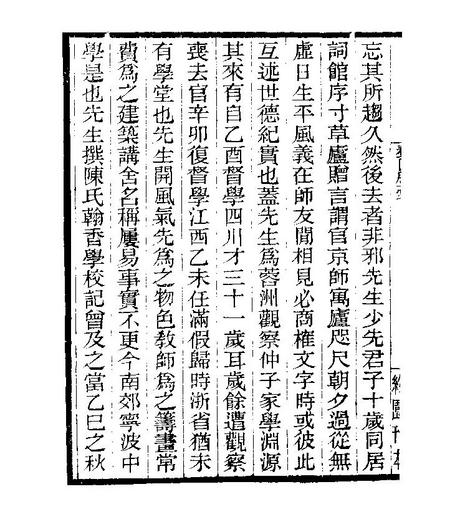 忘其所趨久然後去者非邪先生少先君子十歲同居
詞館序寸草廬贈言謂官京師寓廬咫尺朝夕過從無
虛日生平風義在師友閒相見必商榷文字時或彼此
互述世德紀實也蓋先生為蓉洲觀察仲子家學淵源
其來有自乙酉督學四川才三十一歲耳歲餘遭觀察
喪去官辛卯復督學江西乙未任滿假歸時浙省猶未
有學堂也先生開風氣先為之物色敎師為之籌畫常
費為之建築講舍名稱屢易事實不更今南郊寧波中
學是也先生撰陳氏翰香學校記曾及之當乙巳之秋